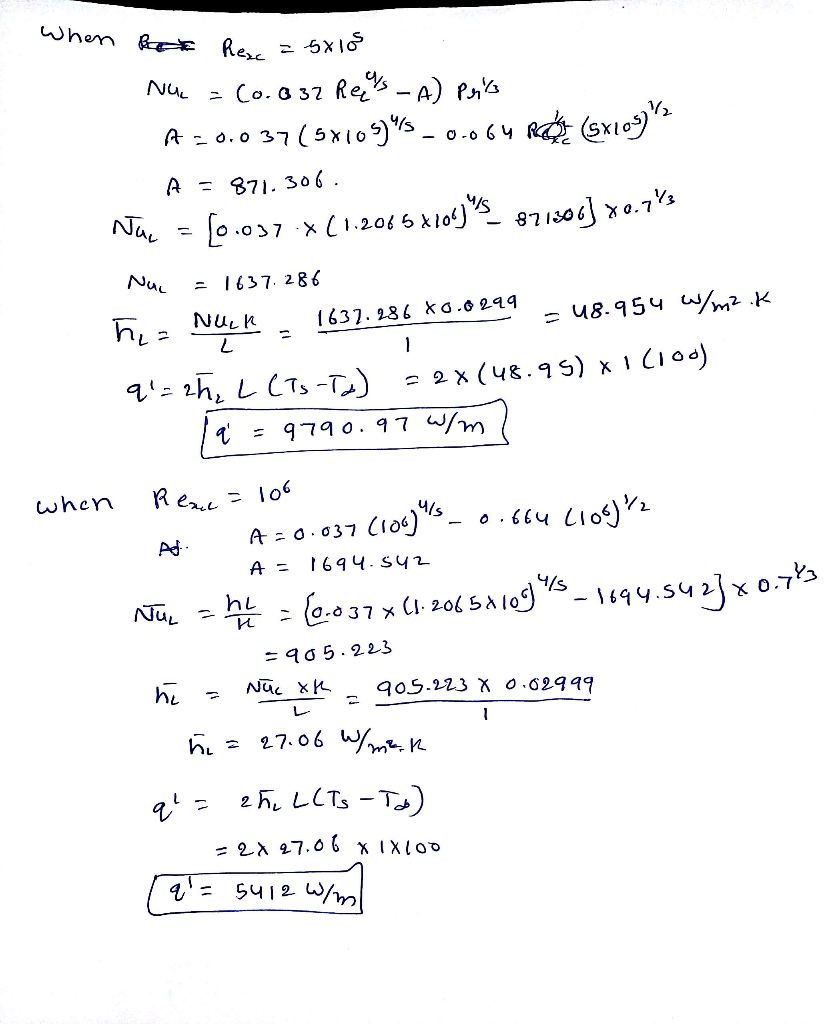 when Rexc = 5x10^5
NuL = (0.037 ReL^4/5 - A) Pr^1/3
A = 0.037 (5x10^5)^4/5 - 0.064 (5x10^5)^1/2
A = 871.306.
N̄uL = [0.037 x (1.2065x10^6)^4/5 - 871306] x 0.7^1/3
NuL = 1637.286
h̄L = NuLk / L = 1637.286 x 0.0299 / 1 = 48.954 W/m2.K
q' = 2h̄L L (Ts - T∞) = 2x(48.95) x 1 (100)
q' = 9790.97 W/m
when Rexc = 106
A = 0.037 (106)^4/5 - 0.664 (106)^1/2
A = 1694.542
N̄uL = hL/k = [0.037 x (1.2065x10^6)^4/5 - 1694.542] x 0.7^1/3
= 905.223
h̄L = N̄uL x k / L = 905.223 x 0.02999 / 1
h̄L = 27.06 W/m2.k
q' = 2h̄L L(Ts - T∞)
= 2x 27.06 x 1x100
q' = 5412 W/m